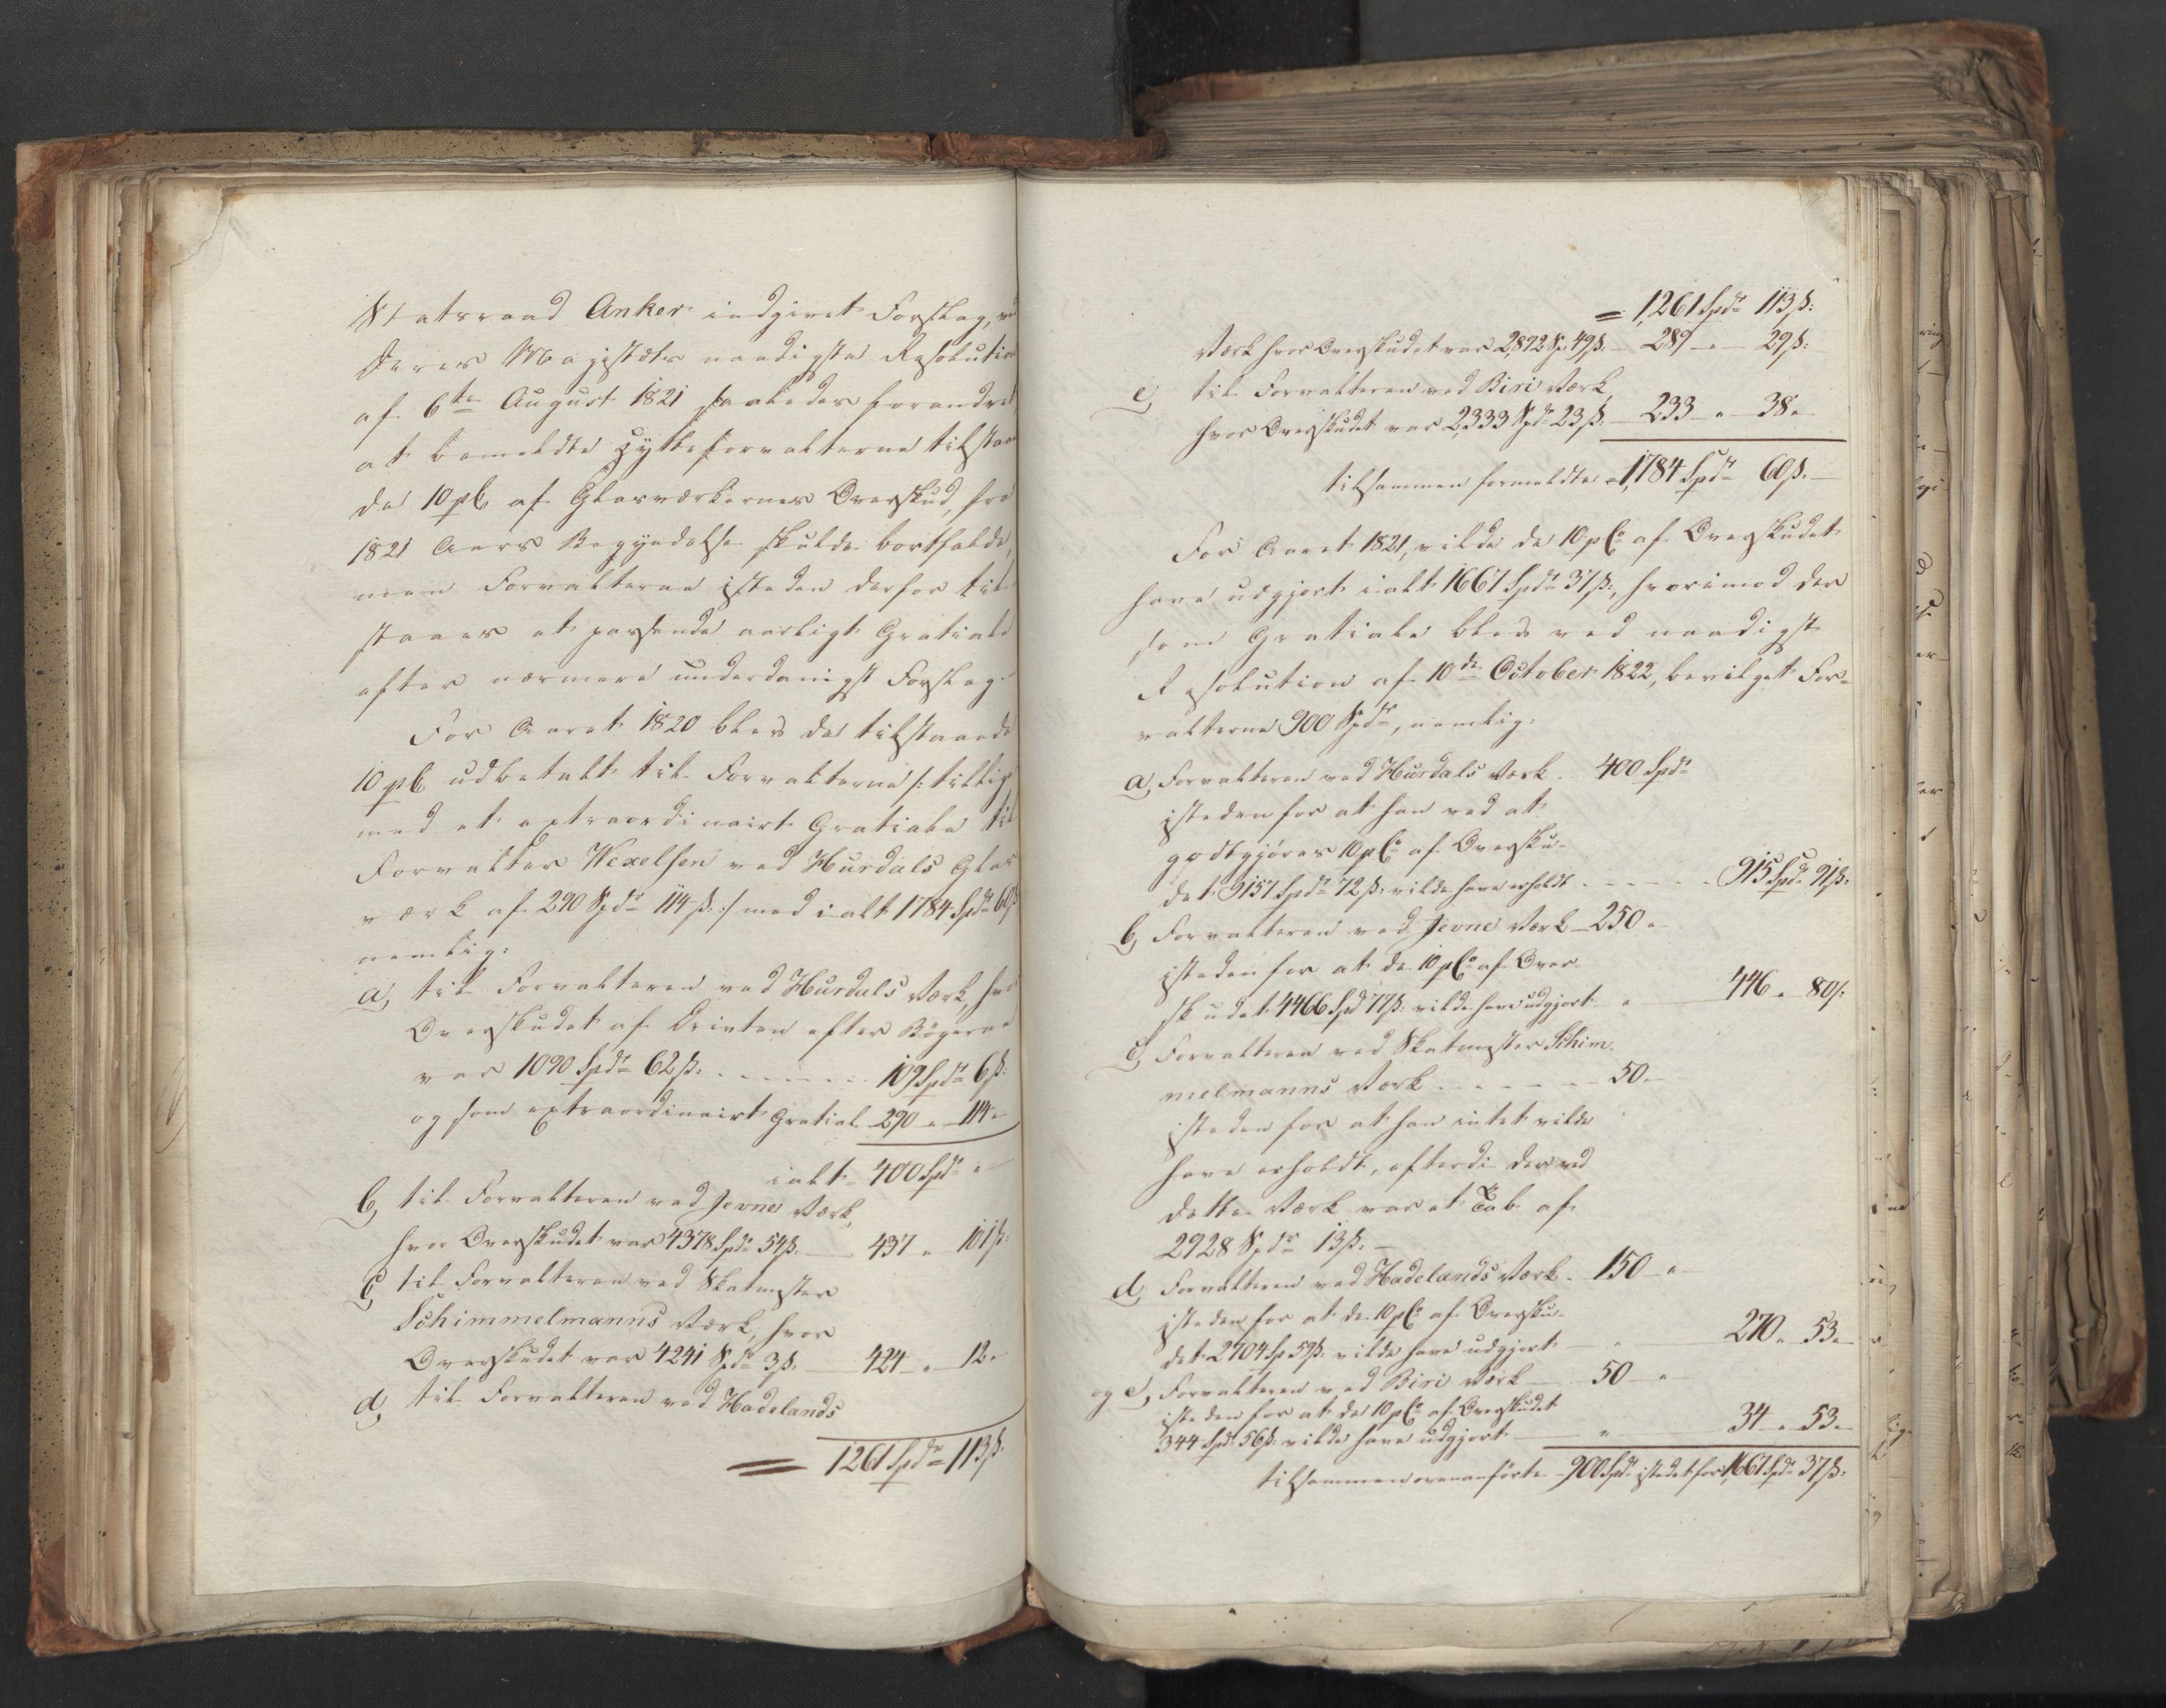 Statsraad Anker indgivet Forslag, ved
Deres Majestæts naadigste Resolution
af 6te August 1821 saaledes forandret
at bemeldte Hytteforvalterne tilstaae
de 10 pC af Glasværkernes Overskud, fra
1821 Aars Begyndelse skulde bortfalde,
men Forvalterne isteden derfor til
staaes et passende aarligt Gratiale
efter nærmere underdanigst Forslag.
For Aaret 1820 blev de tilstaaede
10 pC udbetalt til Forvalterne /: tillige
med et extraordinairt Gratiale til
Forvalter Wexelsen ved Hurdals Glas
værk af 290 Spdr 114 ß: :/ med ialt 1784 Spdr 60 ß
nemlig:
a, til Forvalteren ved Hurdals Værk, hvor
Overskudet af Driften efter Bøgerne
var 1090 Spdr 62 ß: 109 Spdr 6 ß:
og som extraordinairt Gratial 290 " 114 "
ialt 400 Spdr "
b, til Forvalteren ved Jevne Værk,
hvor Overskudet var 4378 Spdr 54 ß. 437 " 101 ß:
c, til Forvalteren ved Skatmester
Schimmelmanns Værk, hvor
Overskudet var 4241 Spdr 3 ß. 424 " 12 "
d, til Forvalteren ved Hadelands
1261 Spdr 113 ß.
= 1,261 Spdr 113 ß:
Værk hvor Overskudet var 2,892 Sp. 49 ß. 289 " 29 ß:
e, til Forvalteren ved Biri Værk,
hvor Overskudet var 2,333 Spdr 23 ß. 233 " 38 "
tilsammen formeldte 1,784 Spdr 60 ß.
For Aaret 1821, vilde de 10 pCo af Overskudet
have udgjort ialt 1667 Spdr 37 ß:, hvorimod der
som Gratiale blev ved naadigst
Resolution af 10de October 1822, bevilget For-
valterne 900 Spdr, nemlig:
a, Forvalteren ved Hurdals Værk 400 Spdr
isteden for at han ved at
godtgjøres 10 pCo af Oversku-
det 9157 Spdr 72 ß: vilde have erholdt 915 Spdr 91 ß:
b, Forvalteren ved Jevne Værk 250 "
isteden for at de 10 pCo af Over-
skudet 4466 Spd 77 ß: vilde have udgjort " 446 " 80 ß:
c, Forvalteren ved Skatmester Schim-
melmanns Værk 50 "
isteden for at han intet vilde
have erholdt, efterdi der ved
dette Værk var et Tab af
2928 Spdr 13 ß.
d, Forvalteren ved Hadelands Værk 150 "
isteden for at de 10 pCo af Oversku-
det 2704 Sp 59 ß: vilde have udgjort " 270 " 53 "
og e, Forvalteren ved Biri Værk 50 "
isteden for at de 10 pCo af Overskudet
344 Spdr 56 ß: vilde have udgjort " 34 " 53 "
tilsammen ovenanførte 900 Spdr istedet for 1,667 Spdr 37 ß: